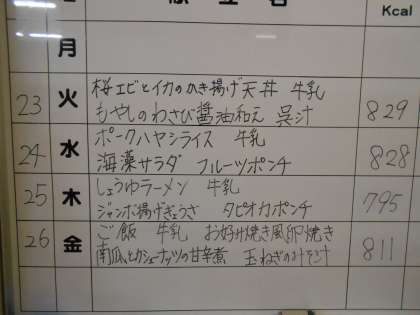 Kcal
月
23 火 桜エビとイカのかき揚げ天丼 牛乳
もやしのわさび醤油和え 呉汁 829
24 水 ポークハヤシライス 牛乳
海藻サラダ フルーツポンチ 828
25 木 しょうゆラーメン 牛乳
ジャンボ揚げぎょうざ タピオカポンチ 795
26 金 ご飯 牛乳 お好み焼き風卵焼き
南瓜とカシューナッツの甘辛煮 玉ねぎのみそ汁 811